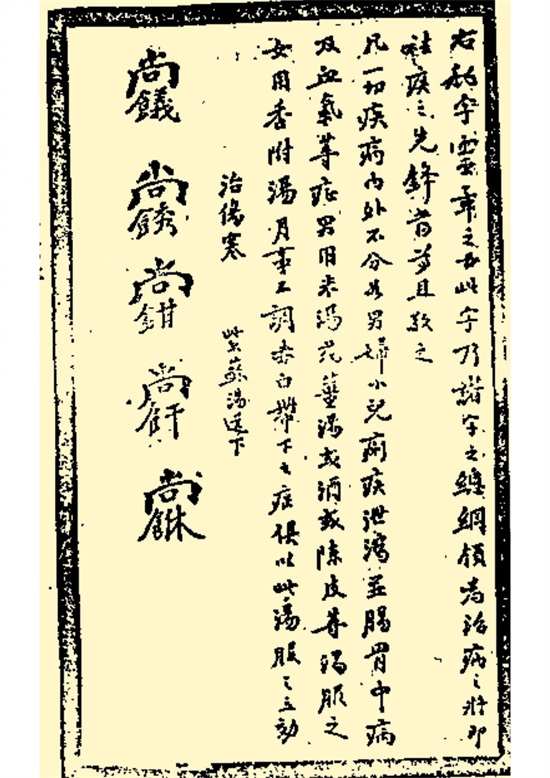 右秘字靈章之母此字乃諸字之總綱領為治病之將即
祛疾之先鋒者尊且敬之
凡一切疾病內外不分男婦小兒痢疾泄瀉並腸胃中病
及血氣等症男用米湯薑湯或酒或陳皮等湯服之
女用香附湯月事不調赤白帶下之症俱以此湯服之立効
治傷寒 紫蘇湯送下